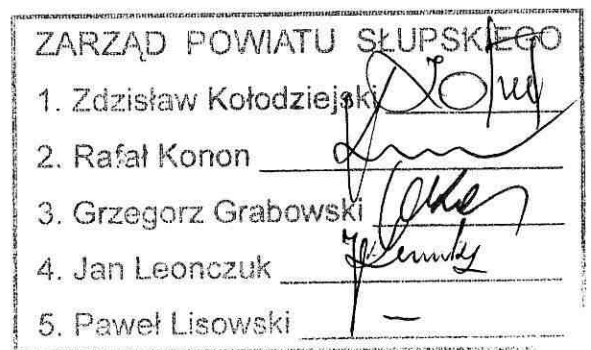 ZARZĄD POWIATU SŁUPSKIEGO
1. Zdzisław Kołodziejski
2. Rafał Konon
3. Grzegorz Grabowski
4. Jan Leonczuk
5. Paweł Lisowski –